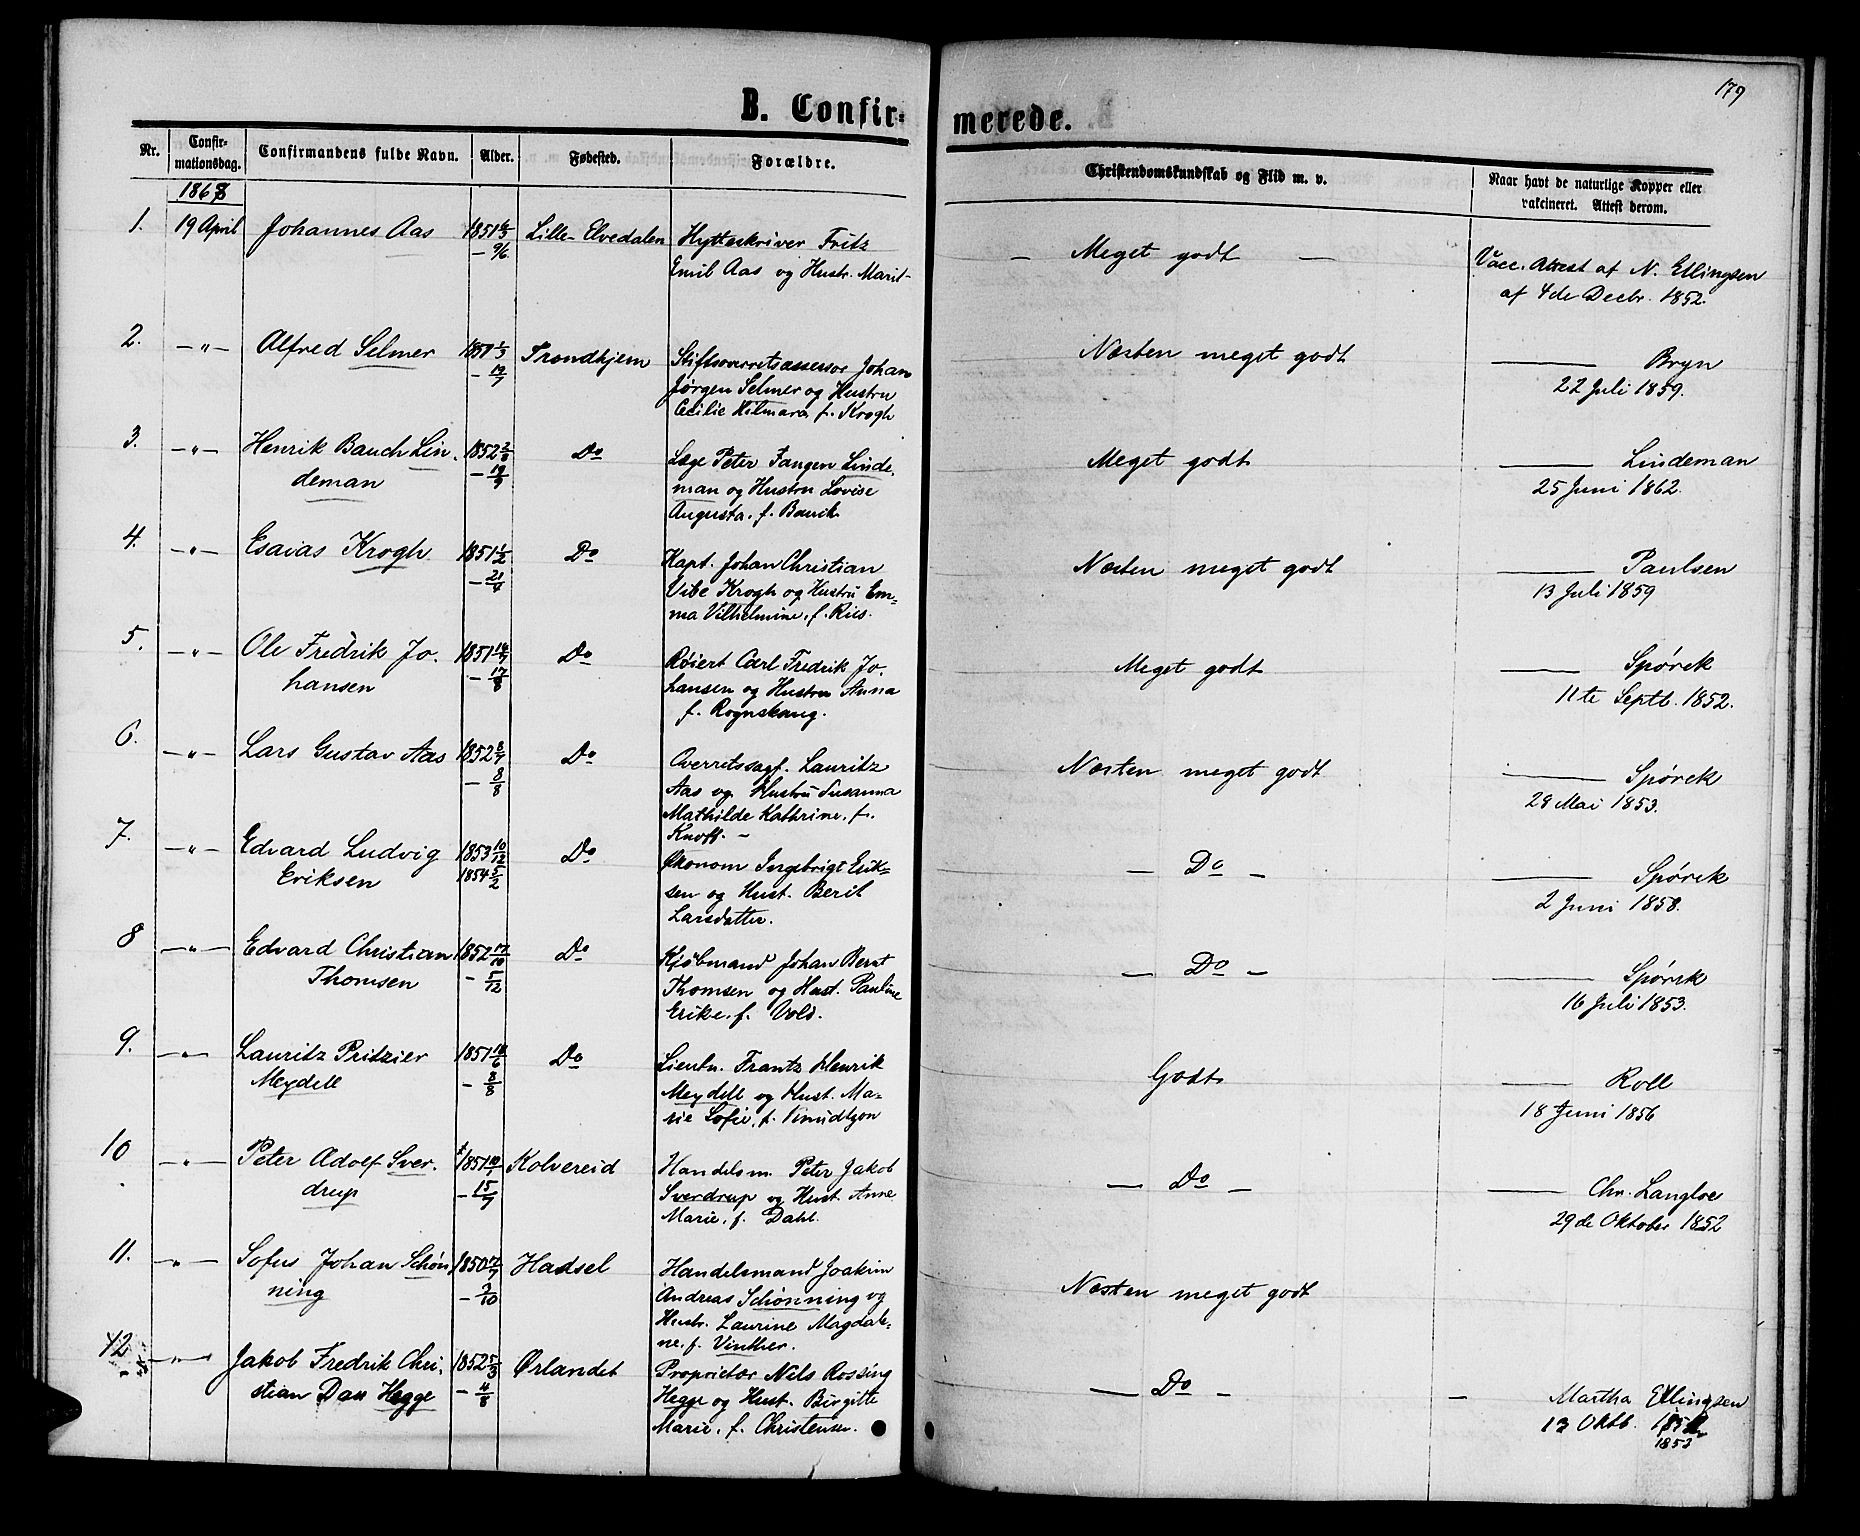 179
B. Confirmerede.
Nr. Confirmationsdag. Confirmandens fulde Navn. Alder. Fødested. Forældre. Christendomskundskab og Flid m. v. Naar havt de naturlige Kopper eller vakcineret. Attest derom.
1868
1. 19 April Johannes Aas 1851 Lille-Elvedalen Hytteskriver Fritz
Emil Aas og Hustr. Marit-
— Meget godt — Vacc. Attest af N. Ellingsen
af 4de Decbr. 1852.
2. —"— Alfred Selmer 1851 1/3 Trondhjem Stiftsoverretsassessor Johan
— 19/7 Jørgen Selmer og Hustru
Cecilie Hilmara f. Krogh
Næsten meget godt — Bryn
22 Juli 1859.
3. —"— Henrik Bauck Lin- 1852 Do Læge Peter Fangen Linde-
deman man og Hustru Lovise
Augusta, f. Bauck
Meget godt — Lindeman
25 Juni 1862.
4. —"— Esaias Krogh 1851 1/2 Do Kapt. Johan Christian
— 21/4 Vibe Krogh og Hustru Em-
ma Vilhelmine, f. Ries.
Næsten meget godt — Paulsen
13 Juli 1859
5. —"— Ole Fredrik Jo- 1851 Do Røiert Carl Fredrik Jo-
hansen — 17/8 hansen og Hustru Anna
f. Rognskaug.
Meget godt — Spørck
11te Septb. 1852.
6. —"— Lars Gustav Aas 1852 Do Overretssagf. Lauritz
— 8/8 Aas og Hustru Susanna
Mathilde Kathrine, f.
Knoff. —
Næsten meget godt — Spørck
29 Mai 1853.
7. —"— Edvard Ludvig 1853 10/12 Do Økonom Ingebrigt Erik-
Eriksen 1854 5/2 sen og Hust. Berit
Larsdatter.
— Do — — Spørck
2 Juni 1858.
8 —"— Edvard Christian 1852 17/10 Do Kjøbmand Johan Bernt
Thomsen — 5/12 Thomsen og Hust. Pauline
Erike, f. Vold.
— Do — — Spørck
16 Juli 1853.
9. —"— Lauritz Pritzier 1851 Do Lieutn. Frantz Henrik
Meydell — 8/8 Meydell og Hust. Ma-
rie Sofie, f.
Godt — Roll
18 Juni 1856
10 —"— Peter Adolf Sver- 1851 Kolvereid Handelsm. Peter Jakob
drup — 15/7 Sverdrup og Hust. Anne
Marie, f. Dahl.
— Do — — Chr. Langloe
29de Oktober 1852
11. —"— Sofus Johan Schøn- 1850 17/7 Hadsel Handelsmand Joakim
ning — 3/10 Andreas Schønning og
Hustr. Laurine Magdale-
ne, f. Vinther.
Næsten meget godt
12 —"— Jakob Fredrik Chri- 1852 5/3 Ørlandet Proprietær Nils Rossing
stian Dass Hegge — 4/8 Hegge og Hust. Birgitte
Marie, f. Christensen.
— Do — — Martha Ellingsen
13 Oktb.
1853